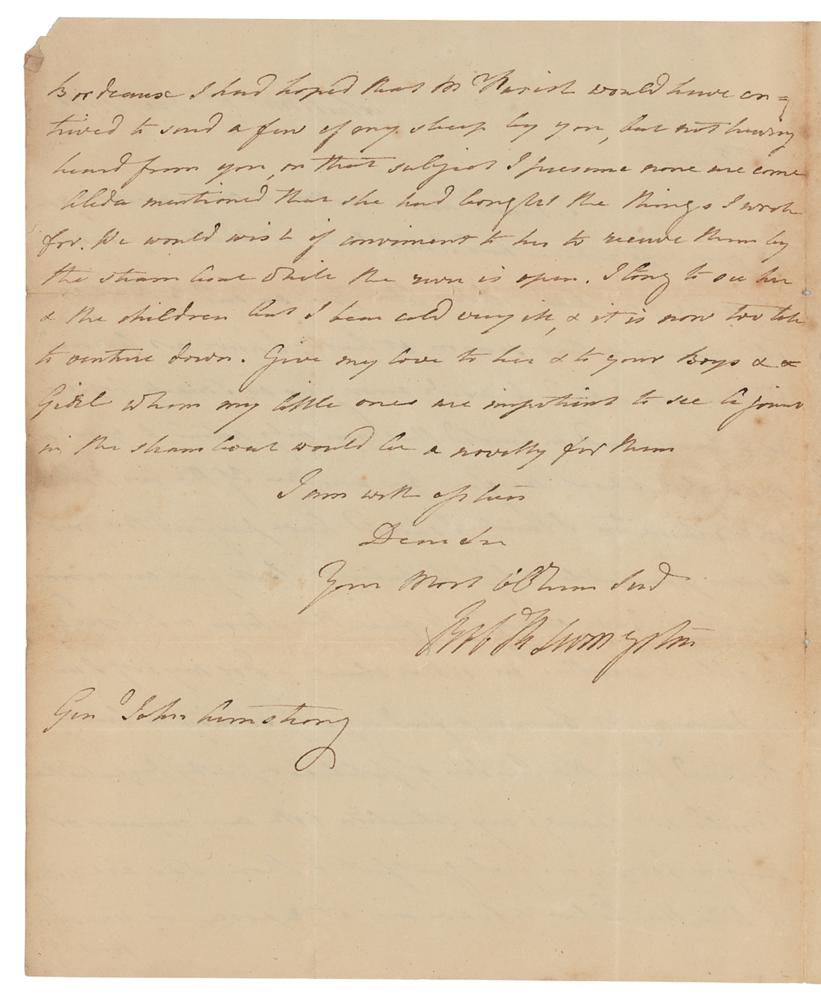 Bordeaux I had hoped that Mr Parish would have con=
trived to send a few of my sheep by you, but not having
heard from you, on that subject I presume none are come
Alida mentioned that she had bought the things I wrote
for. We would wish if convinient to her to receive them by
the steam boat while the river is open. I long to see her
& the children but I bear cold very ill, & it is now too late
to venture down. Give my love to her & to your Boys & &
Girl whom my little ones are impatient to see A journey
in the steam boat would be a novelty for them
I am with esteem
Dear Sir
Your Most Ob Hum Servt
Robt R Livingston
Genl John Armstrong